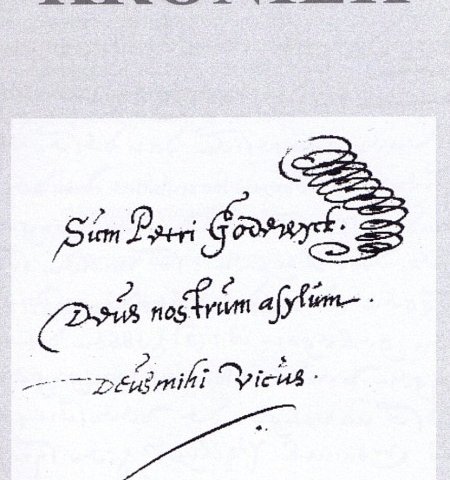 KRONIEK
Sum Petri Godewyck.
Deus nostrum asylum.
Deus mihi vicus.